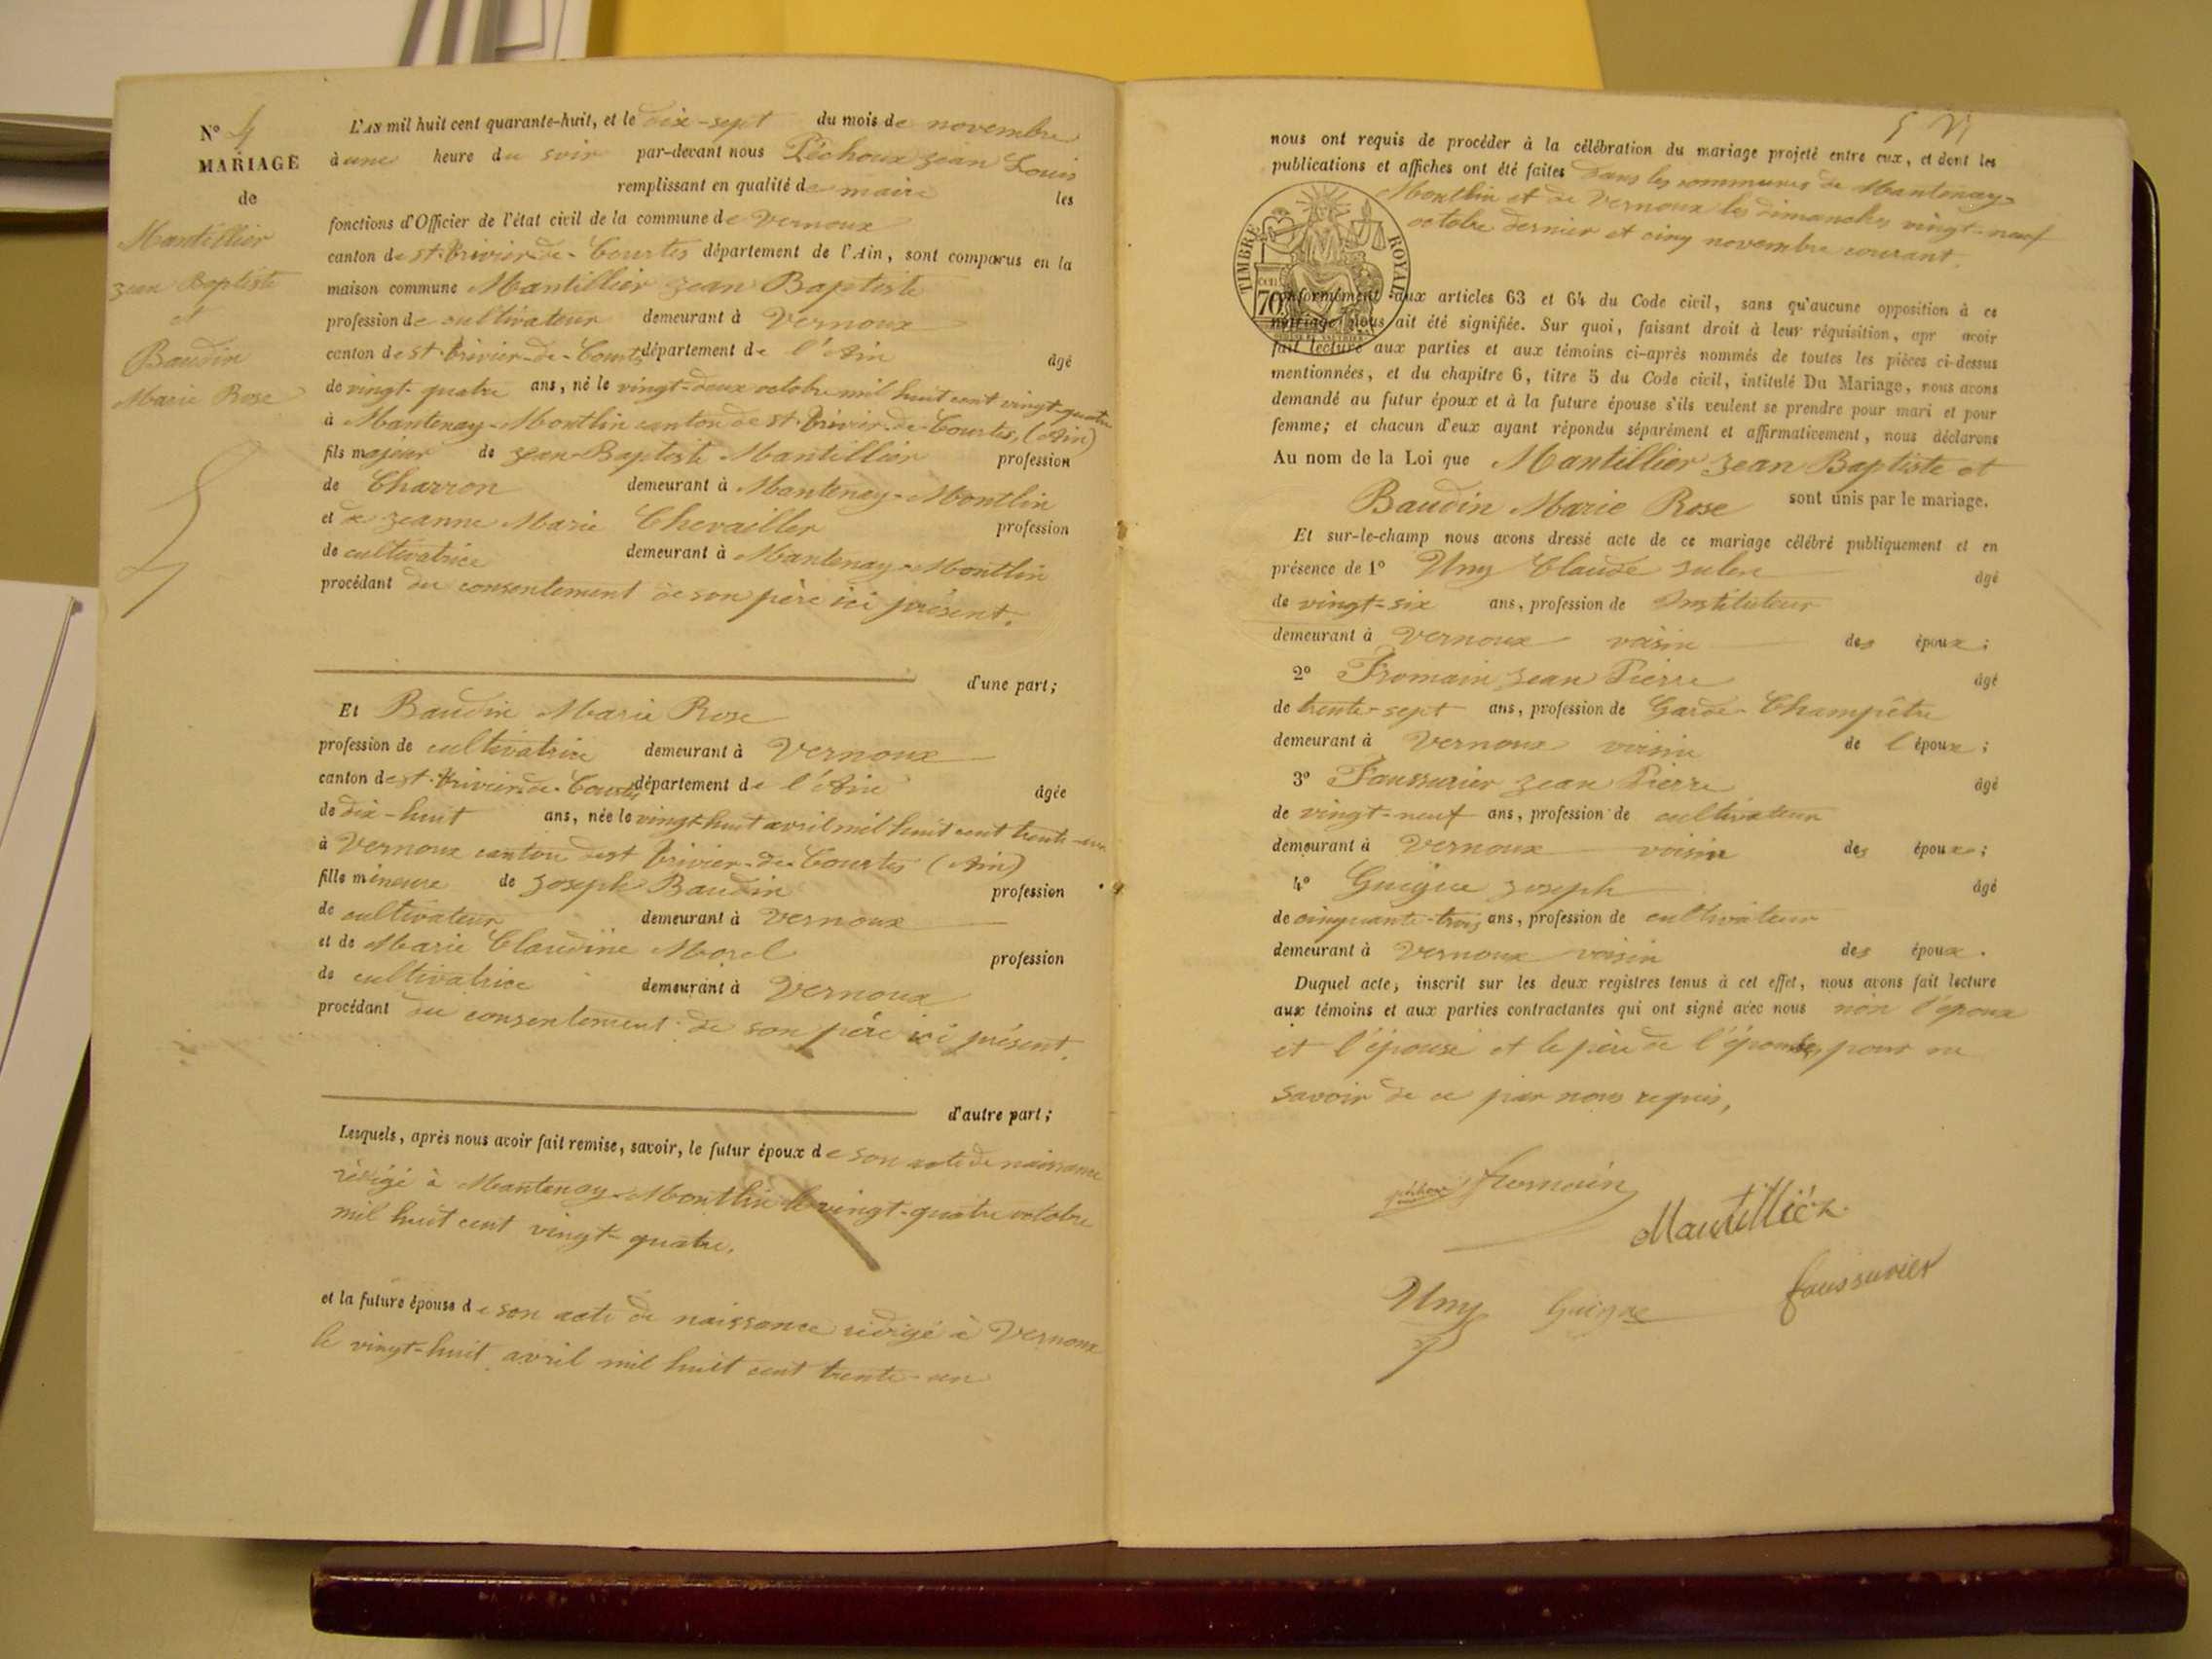 N° 4
MARIAGE
de
Mantillier
Jean Baptiste
et
Baudin
Marie Rose
L'AN mil huit cent quarante-huit, et le dix-sept du mois de novembre
à une heure du soir par-devant nous Péchoux Jean Louis
remplissant en qualité de maire les
fonctions d'Officier de l'état civil de la commune de Vernoux
canton de st. Trivier-de-Courtes département de l'Ain, sont comparus en la
maison commune Mantillier Jean Baptiste
profession de cultivateur demeurant à Vernoux
canton de st. Trivier-de-Courtes département de l'Ain âgé
de vingt-quatre ans, né le vingt-deux octobre mil huit cent vingt-quatre
à Mantenay-Montlin canton de st. Trivier-de-Courtes, (Ain)
fils majeur de Jean-Baptiste Mantillier profession
de Charron demeurant à Mantenay-Montlin
et de Jeanne Marie Chevailler profession
de cultivatrice demeurant à Mantenay-Montlin
procédant du consentement de son père ici présent.
d'une part;
Et Baudin Marie Rose
profession de cultivatrice demeurant à Vernoux
canton de st. Trivier-de-Courtes département de l'Ain âgée
de dix-huit ans, née le vingt-huit avril mil huit cent trente-un
à Vernoux canton de st Trivier-de-Courtes (Ain)
fille mineure de Joseph Baudin profession
de cultivateur demeurant à Vernoux
et de Marie Claudine Morel profession
de cultivatrice demeurant à Vernoux
procédant du consentement de son père ici présent.
d'autre part;
Lesquels, après nous avoir fait remise, savoir, le futur époux de son acte de naissance
rédigé à Mantenay-Montlin le vingt-quatre octobre
mil huit cent vingt-quatre.
et la future épouse de son acte de naissance rédigé à Vernoux
le vingt-huit avril mil huit cent trente-un
5
nous ont requis de procéder à la célébration du mariage projeté entre eux, et dont les
publications et affiches ont été faites dans les communes de Mantenay-
Montlin et de Vernoux les dimanches vingt-neuf
octobre dernier et cinq novembre courant.
TIMBRE ROYAL
70
conformément aux articles 63 et 64 du Code civil, sans qu'aucune opposition à ce
mariage nous ait été signifiée. Sur quoi, faisant droit à leur réquisition, apr avoir
fait lecture aux parties et aux témoins ci-après nommés de toutes les pièces ci-dessus
mentionnées, et du chapitre 6, titre 5 du Code civil, intitulé Du Mariage, nous avons
demandé au futur époux et à la future épouse s'ils veulent se prendre pour mari et pour
femme; et chacun d'eux ayant répondu séparément et affirmativement, nous déclarons
Au nom de la Loi que Mantillier Jean Baptiste et
Baudin Marie Rose sont unis par le mariage.
Et sur-le-champ nous avons dressé acte de ce mariage célébré publiquement et en
présence de 1° Uny Claude Julen âgé
de vingt-six ans, profession de Instituteur
demeurant à Vernoux voisin des époux;
2° Fromain Jean Pierre âgé
de trente-sept ans, profession de Garde-Champêtre
demeurant à Vernoux voisin de l'époux;
3° Foussurier Jean Pierre âgé
de vingt-neuf ans, profession de cultivateur
demeurant à Vernoux voisin des époux;
4° Guigue Joseph âgé
de cinquante-trois ans, profession de cultivateur
demeurant à Vernoux voisin des époux.
Duquel acte, inscrit sur les deux registres tenus à cet effet, nous avons fait lecture
aux témoins et aux parties contractantes qui ont signé avec nous non l'époux
et l'épouse et le père de l'épouse, pour ne
savoir de ce par nous requis,
péchoux fromain
Mantillier
Uny Guigue foussurier